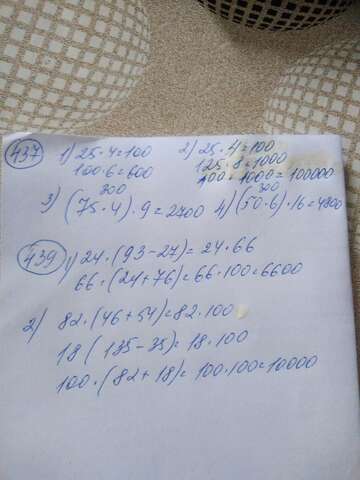 437 1) 25·4=100 2) 25·4=100
100·6=600 125·8=1000
100·1000=100000
300 300
3) (75·4)·9=2700 4) (50·6)·16=4800
439 1) 24·(93-27)=24·66
66·(24+76)=66·100=6600
2) 82·(46+54)=82·100
18(135-35)=18·100
100·(82+18)=100·100=10000